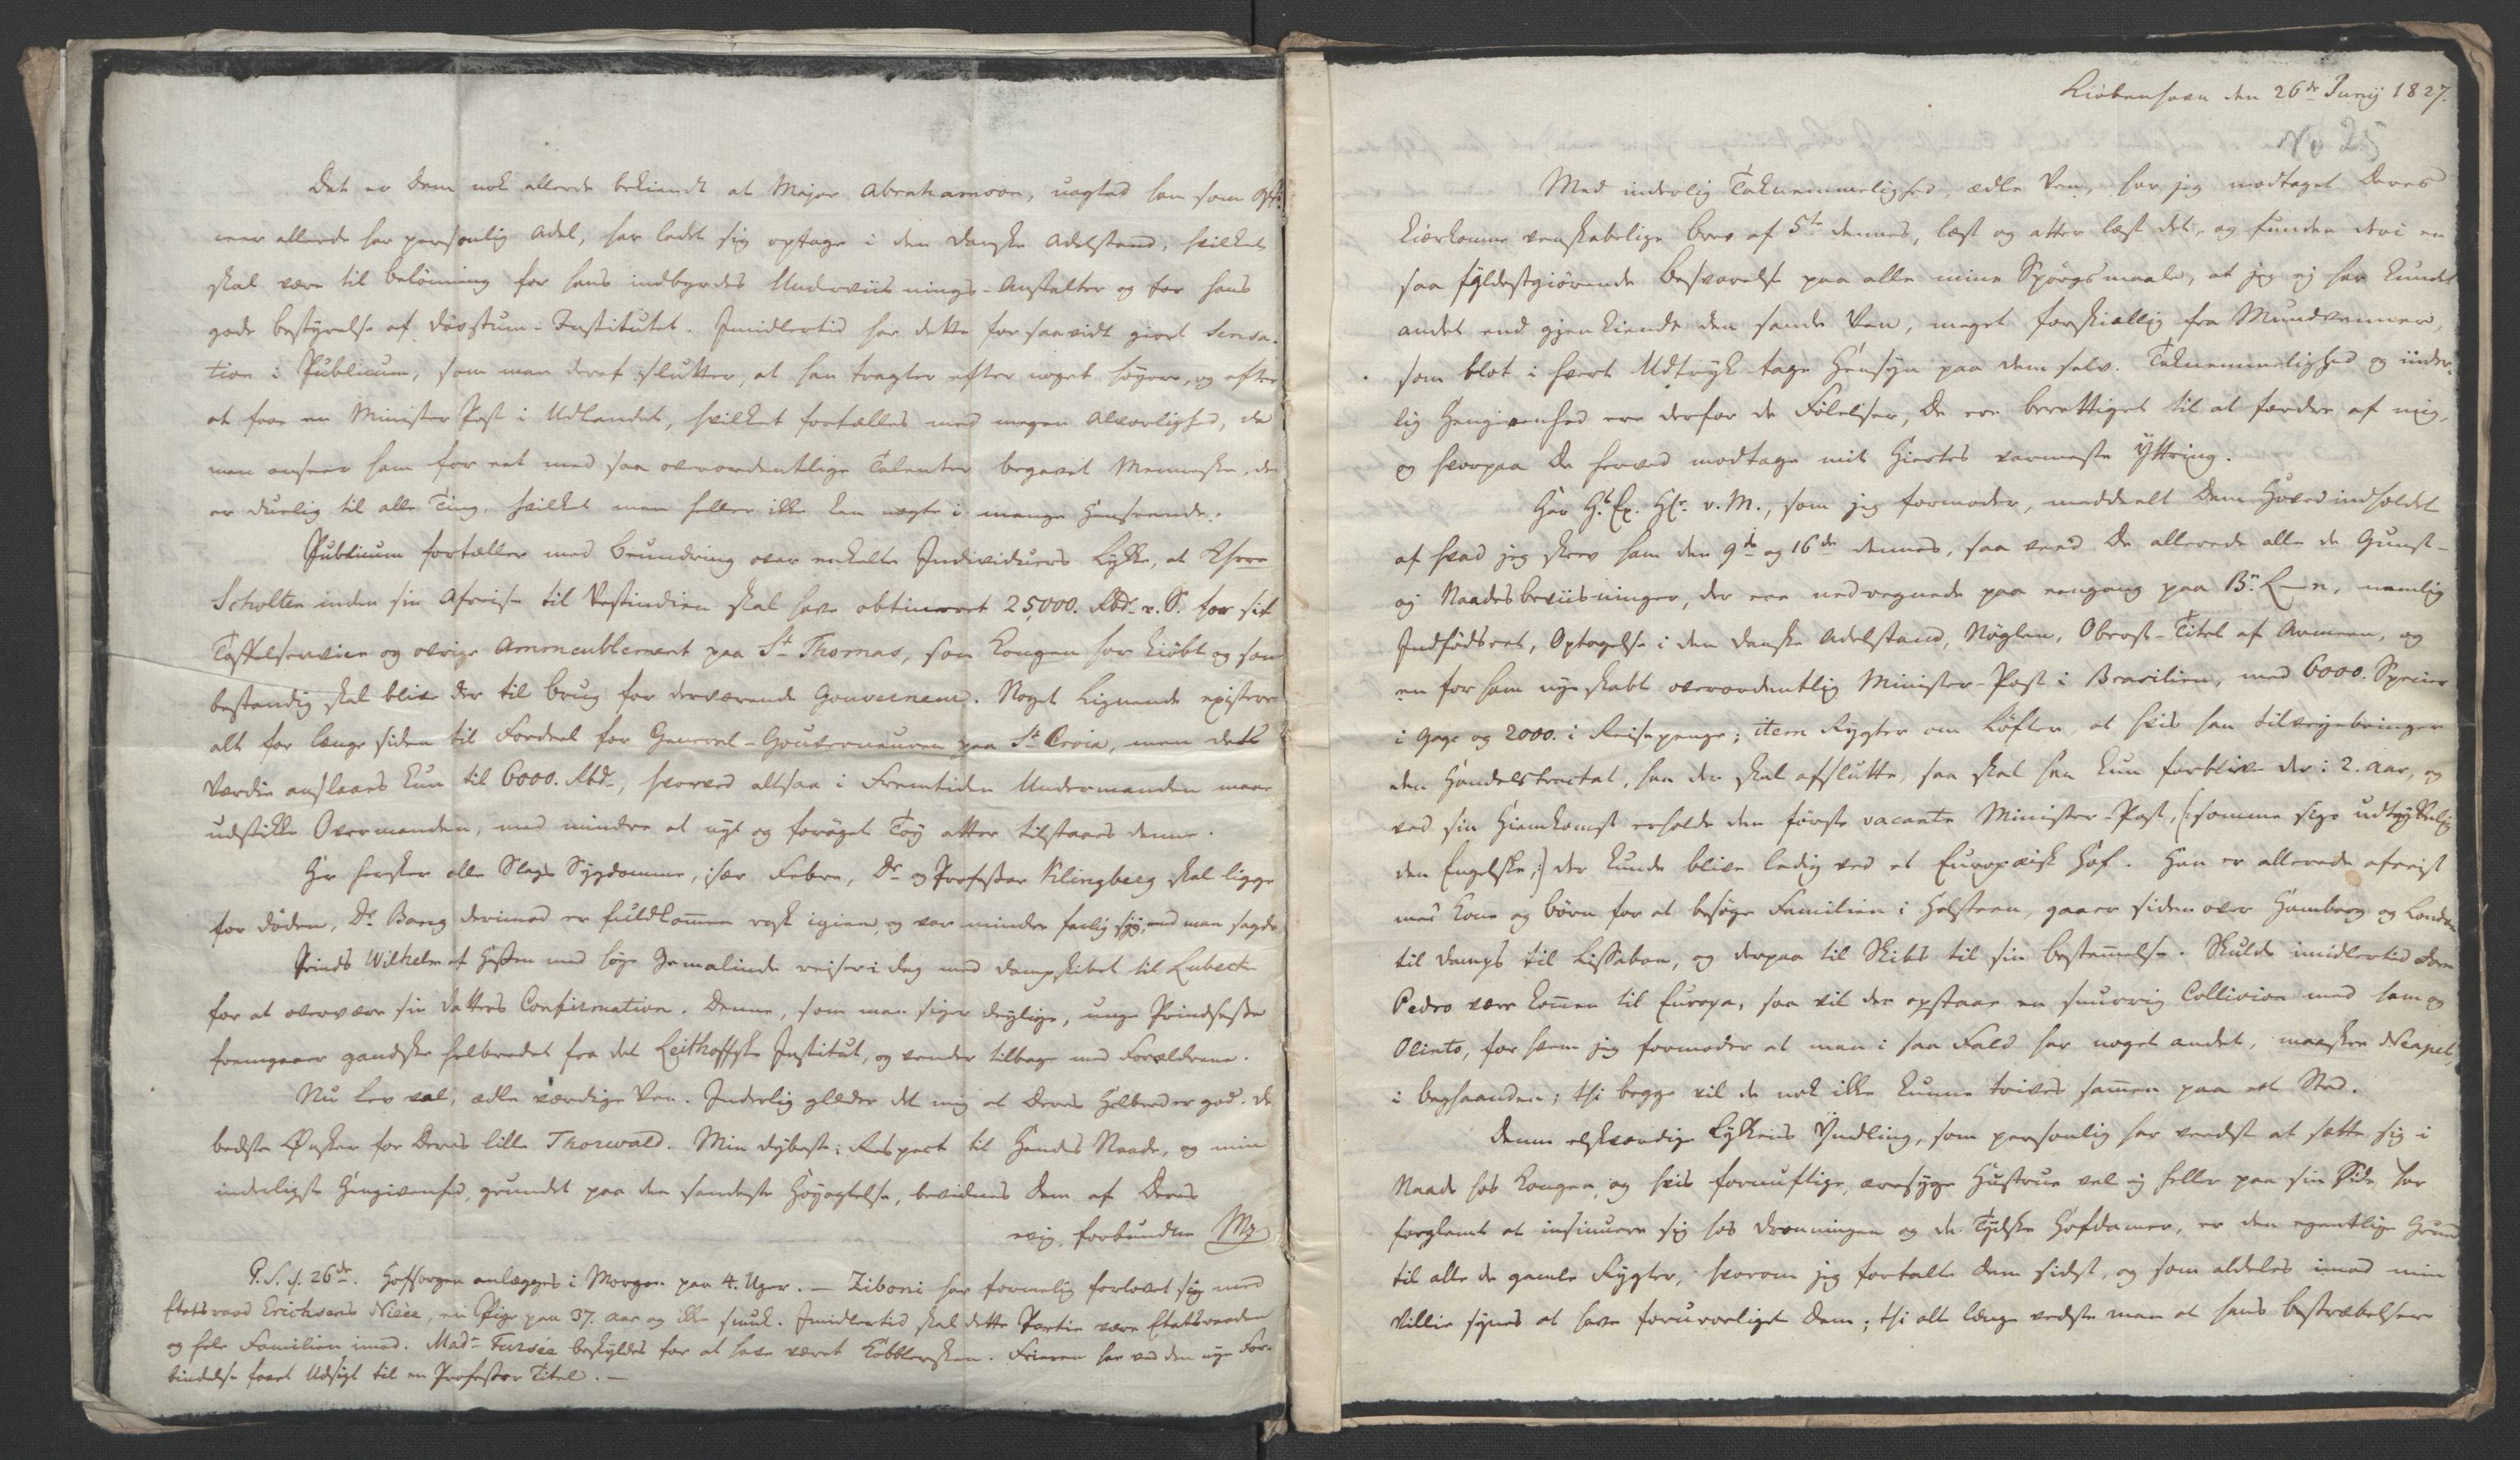 Det er Dem nok allerede bekiendt at Major Abrahamson, uagted han som Offi-
ceer allerede har personlig Adel, har ladet sig optage i den danske Adelstand, hvilket
skal være til belönning for hans indbyrdes Underviisnings-Anstalter og for hans
gode bestyrelse af Dövstum-Institutet. Imidlertid har dette for saavidt giort Sensa-
tion i Publicum, som man deraf slutter, at han tragter efter noget höyere, og efter
at faae en Minister Post i Udlandet, hvilket fortælles med megen Alvorlighed, da
man anseer ham for eet med saa overordentlige Talenter begavet Menneske, der
er duelig til alle Ting, hvilket man heller ikke kan nægte i mange Henseende.
Publicum fortæller med Beundring over enkelte Individuers Lykke, at
Scholten inden sin Afreise til Vestindien skal have obtineret 25,000. Rbd. r. S. for sit
Taffelservice og övrige Ammeublement paa St. Thomas, som Kongen har kiöbt og som
bestandig skal blive der til Brug for derværende Gouverneur. Noget Lignende existerer
alt for længe siden til Fordeel for General-Gouverneuren paa St. Croix, men dets
Værdie anslaaes kun til 6000. Rbd., hvorved altsaa i Fremtiden Undermanden maae
udstikke Overmanden, med mindre et nyt og foröget Töy atter tilstaaes denne.
Her hersker alle Slags Sygdomme, især Febre, Dr. og Professor Klingberg skal ligge
for döden, Dr. Bang derimod er fuldkommen rask igien, og var mindre farlig syg, end man sagde.
Prinds Wilhelm af Hessen med höye Gemalinde reiser i dag med dampskibet til Lubeck
for at overvære sin datters Confirmation. Denne, som man siger deylige, unge Prindsesse
fremgaaer gandske helbredet fra det Leithoffske Institut, og vender tilbage med Forældrene.
Nu lev vel, ædle værdige Ven. Inderlig glæder det mig at Deres Helbred er god. De
bedste Ønsker for Deres lille Thorwald. Min dybeste Respect til Hendes Naade, og min
inderligste Hengivenhed, grundet paa den sandeste Höyagtelse, bevidnes Dem af Deres
evig forbundne Mz
P.S. d. 26de. Hofsorgen anlægges i Morgen paa 4. Uger. — Ziboni har formelig forlovet sig med
Etatsraad Erichsens Niece, en Pige paa 37. Aar og ikke smuk. Imidlertid skal dette Partie være Etatsraaden
og hele Familien imod. Made. Fursée beskyldes for at have været Koblersken. Frieren har ved den nye For-
bindelse faaet Udsigt til en Professor Titel. —
Kiöbenhavn den 26de Juny 1827.
Med inderlig Taknemmelighed, ædle Ven, har jeg modtaget Deres
kiærkomne venskabelige brev af 5te dennes, læst og atter læst det, og funden deri en
saa fyldestgiörende besvarelse paa alle mine Spörgsmaale, at jeg ej har kundet
andet end gjenkiende den sande Ven, meget forskiællig fra Mundvenner,
som blot i hvert Udtryk tage Hensyn paa dem selv. Taknemmelighed og inder-
lig Hengivenhed ere derfor de Fölelser, De ere berettiget til at fordre af mig,
og hvorpaa De herved modtage mit Hiertes varmeste Yttring.
Har H. Ex. Hr. v. M., som jeg formoder, meddeelt Dem Hovedindholdet
af hvad jeg skrev ham den 9de og 16de dennes, saa veed De allerede alle de Gunst-
og Naadesbeviisninger, der ere nedregnede paa eengang paa Bn. L—n, nemlig
Indfödsret, Optagelse i den danske Adelstand, Nöglen, Oberst-Titel af Armeen, og
en for ham nye skabt overordentlig Minister-Post i Brasilien, med 6000. Specier
i Gage og 2000. i Reisepenge; item Rygter om Löfter, at hvis han tilveyebringer
den Handelstractat, han der skal afslutte, saa skal han kun forblive der i 2. Aar, og
ved sin Hiemkomst erholde den förste vacante Minister-Post, (: somme sige udtrykkelig
den Engelske :) der kunde blive ledig ved et Europæisk Hof. Han er allerede afreist
med Kone og börn for at besöge Familien i Holsteen, gaaer siden over Hamborg og London
til damps til Lissabon, og derpaa til Skibs til sin bestemmelse. Skulde imidlertid Dom
Pedro være kommen til Europa, saa vil der opstaae en snurrig Collision med ham og
Olinto, for hvem jeg formoder at man i saa Fald har noget andet, maaskee Neapel,
i baghaanden; thi begge vil de nok ikke kunne trives sammen paa eet Sted.
Denne elskværdige Lykkens Yndling, som personlig har vidst at sætte sig i
Naade hos Kongen, og hvis fornuftige, æresyge Hustrue vel ej heller paa sin Side har
forglemt at insinuere sig hos Dronningen og de Tydske Hofdamer, er den egentlige Grund
til alle de gamle Rygter, hvorom jeg fortalte Dem sidst, og som aldeles imod min
Villie synes at have foruroeliget Dem; thi alt længe vidste man at hans bestræbelser